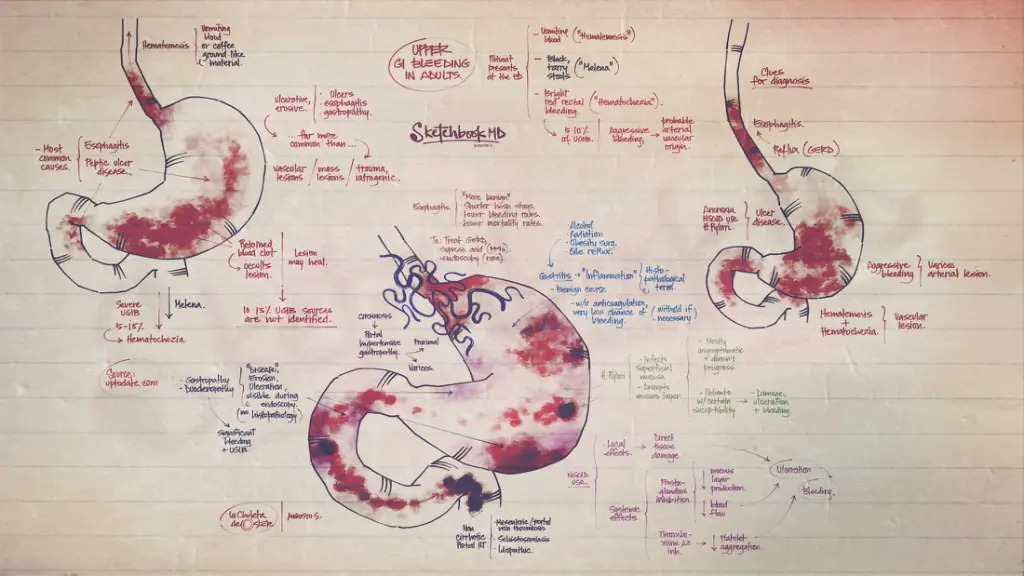 UPPER
GI BLEEDING
IN ADULTS.
Patient
presents
at the ED
- Vomiting
blood
("Hematemesis")
- Black,
tarry
stools
("Melena")
- Bright
red rectal
bleeding.
("Hematochezia").
5-10%
of UGIB.
Aggressive
bleeding,
probable
arterial
vascular
origin.
SketchbookMD
Hematemesis
Vomiting
blood
or coffee
ground-like
material.
- Most
common
causes.
Esophagitis
Peptic ulcer
disease.
Ulcerative,
erosive.
Ulcers
esophagitis
gastropathy.
...far more
common than...
vascular
lesions / mass
lesions / trauma,
iatrogenic.
Retained
blood clot
occults
lesion.
Lesion
may heal.
10-15% UGIB sources
are not identified.
Severe
UGIB
5-15%
Hematochezia.
Melena.
Clues
for diagnosis
Esophagitis.
Reflux (GERD)
Anorexia
NSAID use
H. Pylori.
Ulcer
disease.
Aggressive
bleeding
Varices
arterial lesion.
Hematemesis
+
Hematochezia.
Vascular
lesion.
Esophagitis
"More benign"
Shorter hosp. stays.
Lower bleeding rates.
Lower mortality rates.
Tx: Treat GERD,
supress acid (PPIs)
endoscopy (rare).
Alcohol
Radiation
Obesity surg.
Bile reflux.
Gastritis → "Inflammation"
Histo-
pathological
term.
- Benign course
- w/o anticoagulation,
very low chance of
bleeding.
(withold if
necessary)
CIRRHOSIS
Portal
hypertensive
gastropathy.
Proximal
Varices.
Source:
uptodate.com
- Gastropathy
- Duodenopathy
"Disease,
Erosion,
Ulceration,
visible during
endoscopy,
(no histopathology)
Significant
bleeding
+ UGIB
H. Pylori
- Infects
superficial
mucosa.
- Disrupts
mucous layer.
- Mostly
asymptomatic
+ doesn't
progress.
- Patients
w/certain
suceptibility
- Damage,
ulceration
+ bleeding.
NSAID
USE.
- Local
effects.
Direct
tissue
damage.
- Systemic
effects.
Prosta-
glandins
inhibition.
↓ mucous
layer
production.
↓ blood
flow
Thrombo-
xane A2
inh.
↓ Platelet
aggregation.
Ulceration
Bleeding.
Non
cirrhotic
Portal HT
- Mesenteric/portal
vein thrombosis
- Schistosomiasis
- Idiopathic.
La Chuleta
de OSLER